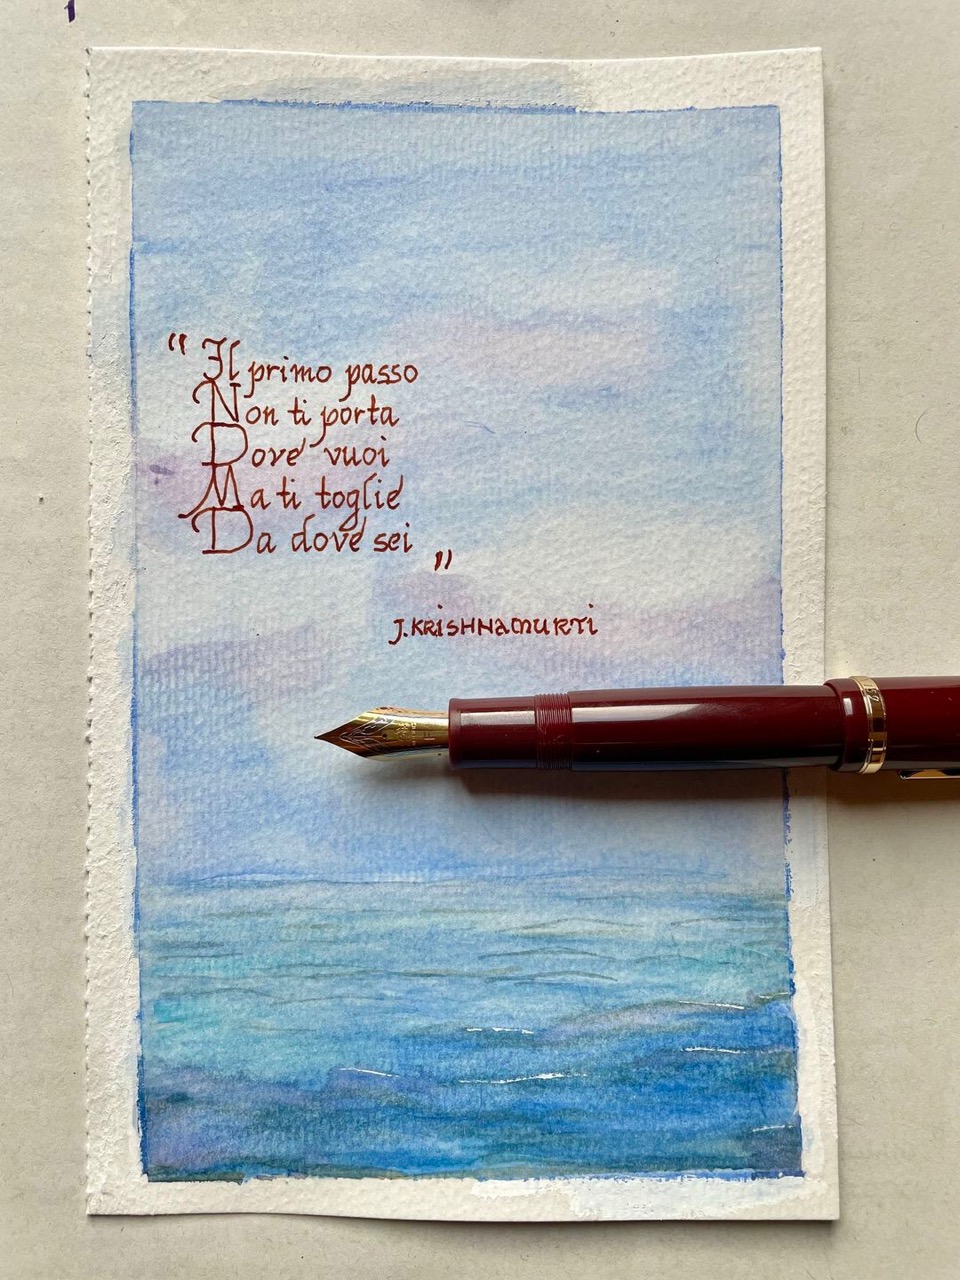 " Il primo passo
Non ti porta
Dove vuoi
Ma ti toglie
Da dove sei "
J. KRISHNAMURTI